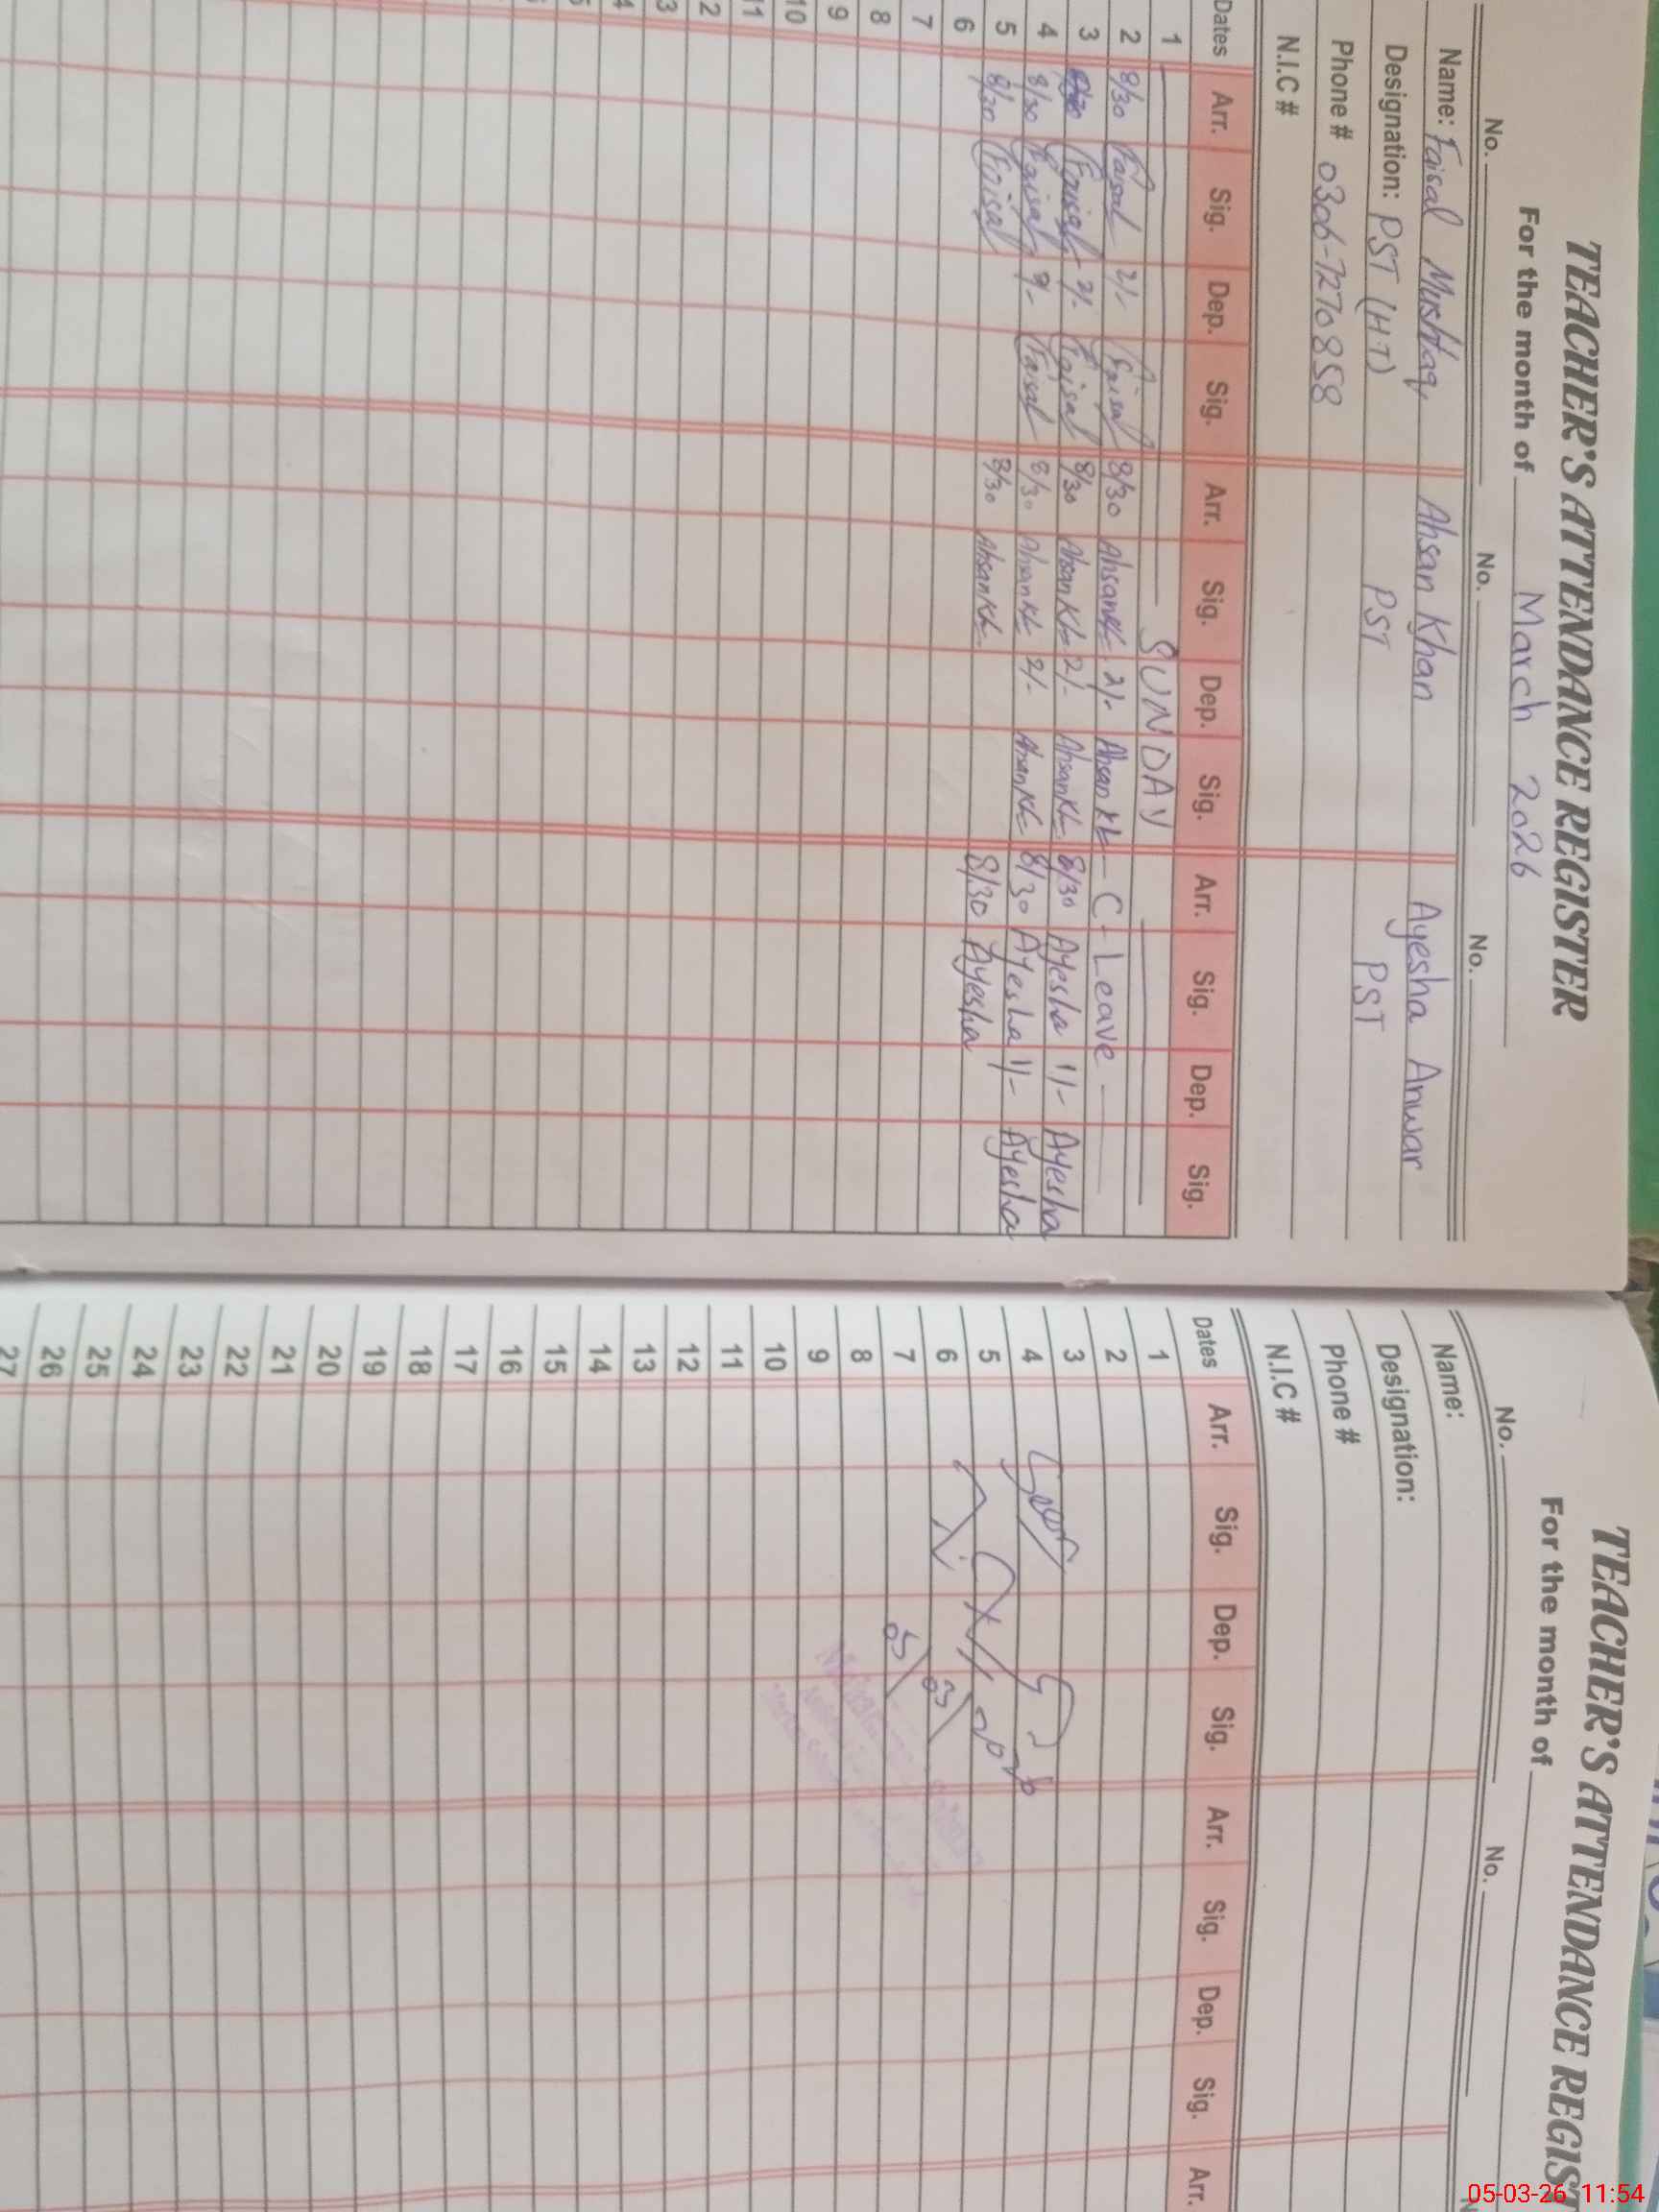 TEACHER'S ATTENDANCE REGISTER
For the month of March 2026
No. No. No.
Name: Faisal Mushtaq Ahsan Khan Ayesha Anwar
Designation: PST (H.T) PST PST
Phone # 0306-7270858
N.I.C #
Dates Arr. Sig. Dep. Sig. Arr. Sig. Dep. Sig. Arr. Sig. Dep. Sig.
1 SUNDAY
2 8/30 Faisal 2/- Faisal 8/30 AhsanKh 2/- AhsanKh C-Leave
3 8/30 Faisal 2/- Faisal 8/30 AhsanKh 2/- AhsanKh 8/30 Ayesha 1/- Ayesha
4 8/30 Faisal Faisal 8/30 AhsanKh 2/- AhsanKh 8/30 Ayesha 1/- Ayesha
5 8/30 Faisal 8/30 AhsanKh 8/30 Ayesha
6
7
8
9
10
11
12
13
14
15
TEACHER'S ATTENDANCE REGIST
For the month of
No. No.
Name:
Designation:
Phone #
N.I.C #
Dates Arr. Sig. Dep. Sig. Arr. Sig. Dep. Sig. Arr.
1
2
3
4
5
6
7
8
9
10
11
12
13
14
15
16
17
18
19
20
21
22
23
24
25
26
27
05-03-26 11:54